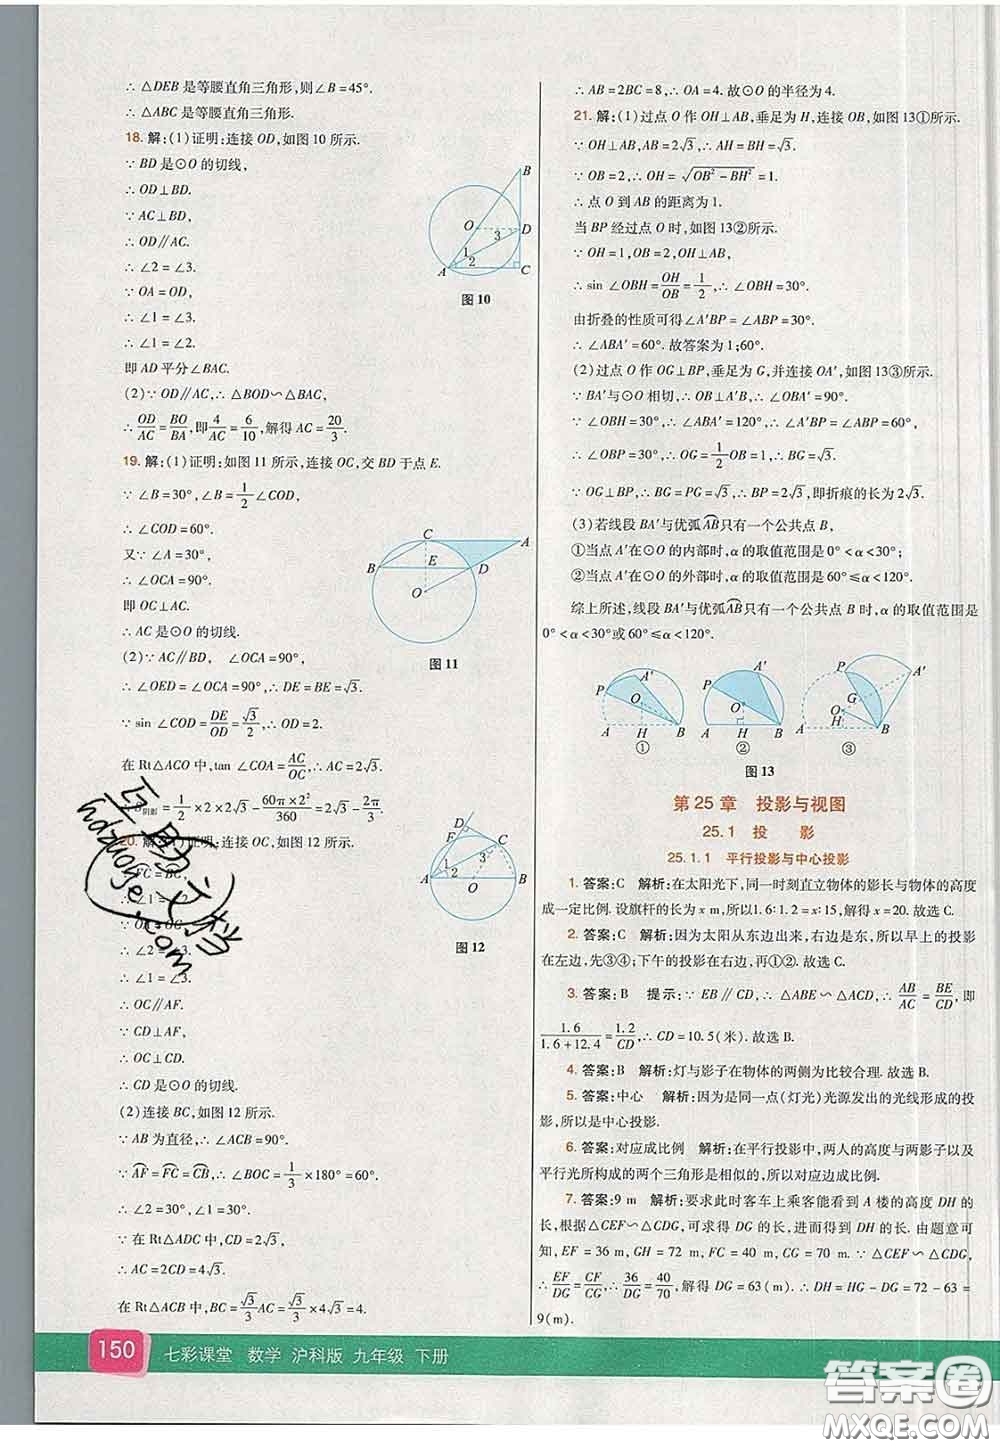 ∴ △DEB 是等腰直角三角形,则∠B=45°.
∴ △ABC 是等腰直角三角形.
18. 解:(1)证明:连接 OD,如图 10 所示.
∵ BD 是⊙O 的切线,
∴ OD⊥BD.
∵ AC⊥BD,
∴ OD∥AC.
∴ ∠2=∠3.
∵ OA=OD,
∴ ∠1=∠3.
∴ ∠1=∠2.
即 AD 平分∠BAC.
(2)∵ OD∥AC,∴ △BOD∽△BAC,
∴ OD/AC=BO/BA,即4/AC=6/10,解得 AC=20/3.
B
O
D
3
1
2
A
C
图 10
19. 解:(1)证明:如图 11 所示,连接 OC,交 BD 于点 E.
∵ ∠B=30°,∠B=1/2∠COD,
∴ ∠COD=60°.
又∵ ∠A=30°,
∴ ∠OCA=90°.
即 OC⊥AC.
∴ AC 是⊙O 的切线.
(2)∵ AC∥BD, ∠OCA=90°,
∴ ∠OED=∠OCA=90°,∴ DE=BE=√3.
∵ sin ∠COD=DE/OD=√3/2,∴ OD=2.
在 Rt△ACO 中,tan ∠COA=AC/OC,∴ AC=2√3.
阴影=1/2×2×2√3-60π×2²/360=2√3-2π/3.
C
A
B
E
D
O
图 11
20. 解:(1)证明:连接 OC,如图 12 所示.
FC=BC,
∴ ∠1=∠2.
∵ OA=OC,
∴ ∠2=∠3.
∴ ∠1=∠3.
∴ OC∥AF.
∵ CD⊥AF,
∴ OC⊥CD.
∴ CD 是⊙O 的切线.
(2)连接 BC,如图 12 所示.
∵ AB 为直径,∴ ∠ACB=90°.
∵ AF=FC=CB,∴ ∠BOC=1/3×180°=60°.
∴ ∠2=30°.
∴ ∠1=30°.
∵ 在 Rt△ADC 中,CD=2√3,
∴ AC=2CD=4√3.
在 Rt△ACB 中,BC=√3/3AC=√3/3×4√3=4.
D
F
C
1
2
3
A
O
B
图 12
∴ AB=2BC=8,∴ OA=4. 故⊙O 的半径为 4.
21. 解:(1)过点 O 作 OH⊥AB,垂足为 H,连接 OB,如图 13①所示.
∵ OH⊥AB,AB=2√3,∴ AH=BH=√3.
∵ OB=2,∴ OH=√(OB²-BH²)=1.
∴ 点 O 到 AB 的距离为 1.
当 BP 经过点 O 时,如图 13②所示.
∵ OH=1,OB=2,OH⊥AB,
∴ sin ∠OBH=OH/OB=1/2,∴ ∠OBH=30°.
由折叠的性质可得∠A′BP=∠ABP=30°.
∴ ∠ABA′=60°. 故答案为 1;60°.
(2)过点 O 作 OG⊥BP,垂足为 G,并连接 OA′,如图 13③所示.
∵ BA′与⊙O 相切,∴ OB⊥A′B,∴ ∠OBA′=90°.
∵ ∠OBH=30°,∴ ∠ABA′=120°,∴ ∠A′BP=∠ABP=60°,
∴ ∠OBP=30°,∴ OG=1/2OB=1,∴ BG=√3.
∵ OG⊥BP,∴ BG=PG=√3,∴ BP=2√3,即折痕的长为 2√3.
(3)若线段 BA′与优弧AB只有一个公共点 B,
①当点 A′在⊙O 的内部时,α 的取值范围是 0°<α<30°;
②当点 A′在⊙O 的外部时,α 的取值范围是 60°≤α<120°.
综上所述,线段 BA′与优弧AB只有一个公共点 B 时,α 的取值范围是
0°<α<30°或 60°≤α<120°.
P
A′
O
A
H
B
①
P
A′
O
A
H
B
②
P
A′
G
O
A
H
B
③
图 13
第 25 章 投影与视图
25.1 投 影
25.1.1 平行投影与中心投影
1. 答案:C 解析:在太阳光下,同一时刻直立物体的影长与物体的高度
成一定比例. 设旗杆的长为 x m,所以1.6∶1.2=x∶15,解得 x=20. 故选 C.
2. 答案:C 解析:因为太阳从东边出来,右边是东,所以早上的投影
在左边,先③④;下午的投影在右边,再①②. 故选 C.
3. 答案:B 提示:∵ EB∥CD,∴ △ABE∽△ACD,∴ AB/AC=BE/CD,即
1.6/(1.6+12.4)=1.2/CD,∴ CD=10.5(米). 故选 B.
4. 答案:B 解析:灯与影子在物体的两侧为比较合理. 故选 B.
5. 答案:中心 解析:因为是同一点(灯光)光源发出的光线形成的投
影,所以是中心投影.
6. 答案:对应成比例 解析:在平行投影中,两人的高度与两影子以及
平行光所构成的两个三角形是相似的,所以对应边成比例.
7. 答案:9 m 解析:要求此时客车上乘客能看到 A 楼的高度 DH 的
长,根据△CEF∽△CDG,可求得 DG 的长,进而得到 DH 的长. 由题意可
知,EF=36 m,GH=72 m,FC=40 m,CG=70 m. ∵ △CEF∽△CDG,
∴ EF/DG=CF/CG,∴ 36/DG=40/70,解得 DG=63(m). ∴ DH=HG-DG=72-63=
9(m).
150 七彩课堂 数学 沪科版 九年级 下册
hdzuoye.com
答案圈
MXQE.COM